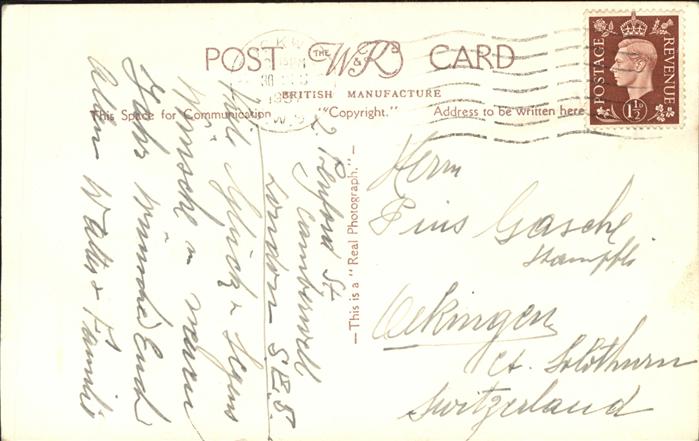 POST THE W & K Ld CARD
BRITISH MANUFACTURE
This Space for Communication "Copyright." Address to be written here
POSTAGE REVENUE
1½D
—This is a "Real Photograph."—
St.
Camberwell
London S.E.5
Viele Glück & Segens
Wünsche
Jahr wünscht Euch
Allen Walter & Familie
Herrn
Pius Gasche
Oekingen
Ct. Solothurn
Switzerland